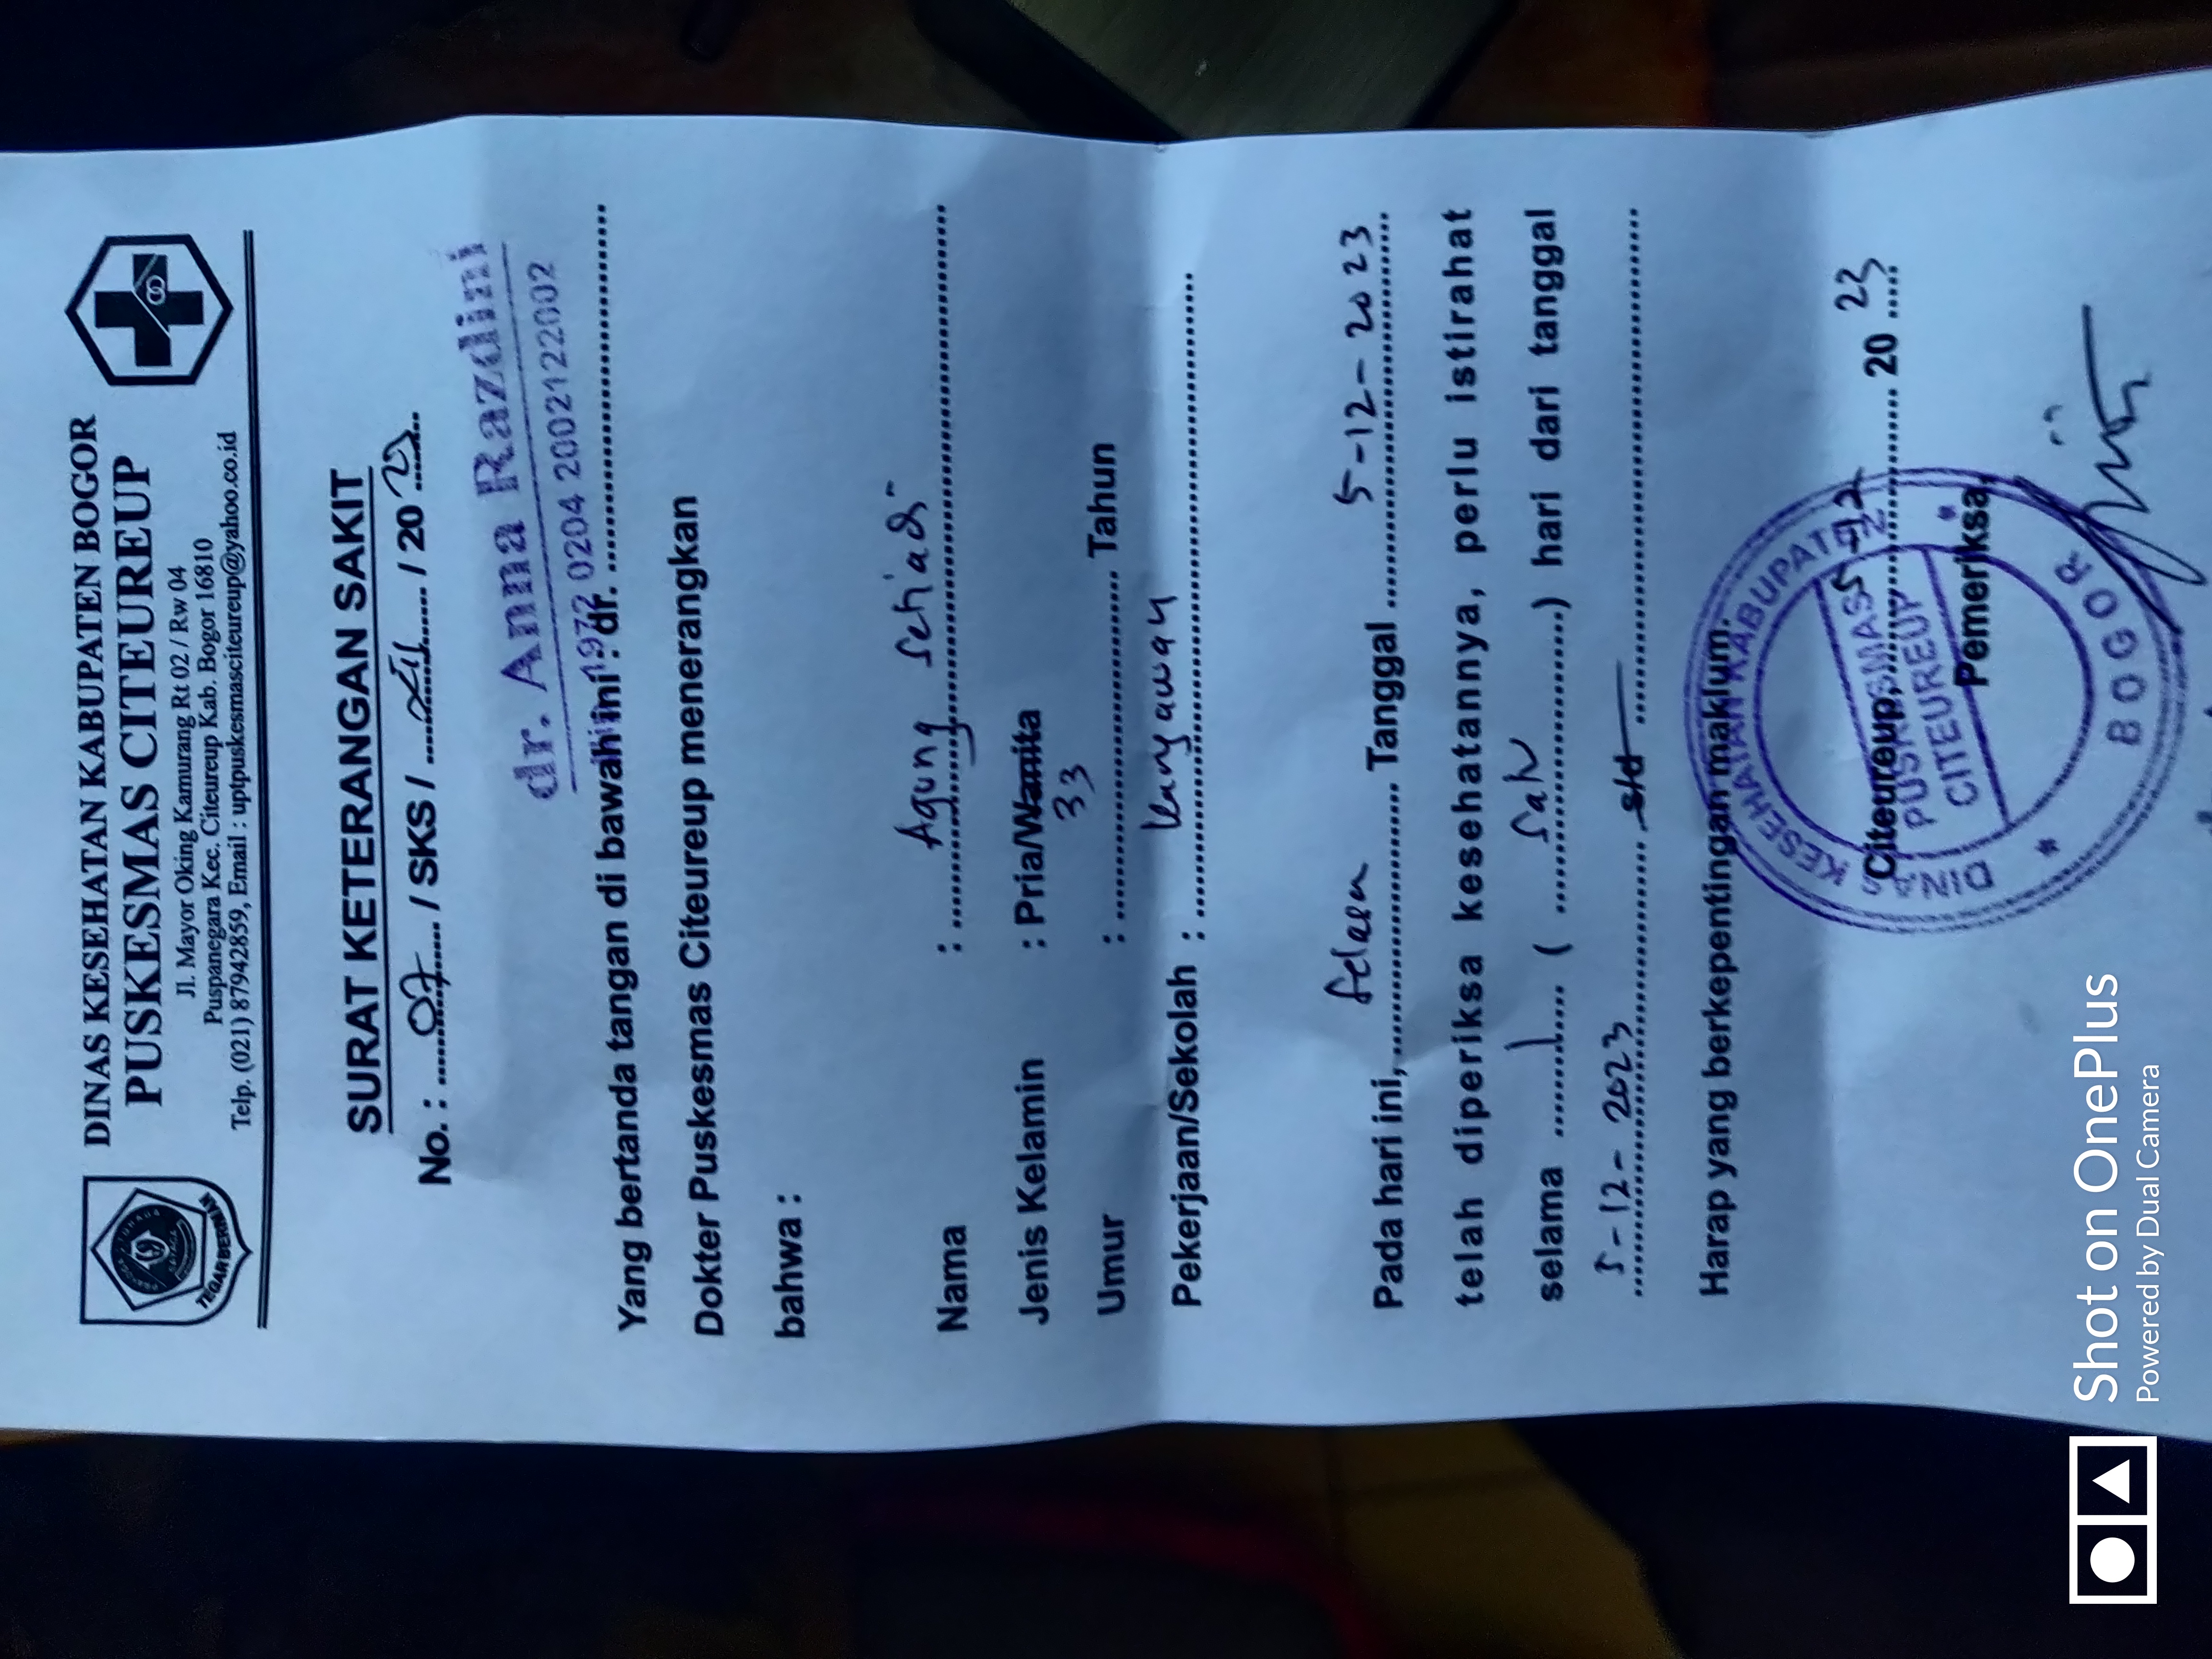 DINAS KESEHATAN KABUPATEN BOGOR
PUSKESMAS CITEUREUP
Jl. Mayor Oking Kamurang Rt 02 / Rw 04
Puspanegara Kec. Citeureup Kab. Bogor 16810
Telp. (021) 87942859, Email : uptpuskesmasciteureup@yahoo.co.id
TEGAR BERIMAN
SURAT KETERANGAN SAKIT
No. : 07 / SKS / XII / 20 23
dr. Anna Razdini
1972 0204 2002122002
Yang bertanda tangan di bawah ini : dr. ..............................
Dokter Puskesmas Citeureup menerangkan
bahwa :
Nama : Agung Setiadi
Jenis Kelamin : Pria/Wanita
Umur : 33 Tahun
Pekerjaan/Sekolah : Karyawan
Pada hari ini, Selasa Tanggal 5-12-2023
telah diperiksa kesehatannya, perlu istirahat
selama 1 ( Satu ) hari dari tanggal
5-12-2023 s/d
Harap yang berkepentingan maklum.
DINAS KESEHATAN KABUPATEN
PUSKESMAS
CITEUREUP
BOGOR
Citeureup, 5-12 20 23
Pemeriksa,
Shot on OnePlus
Powered by Dual Camera